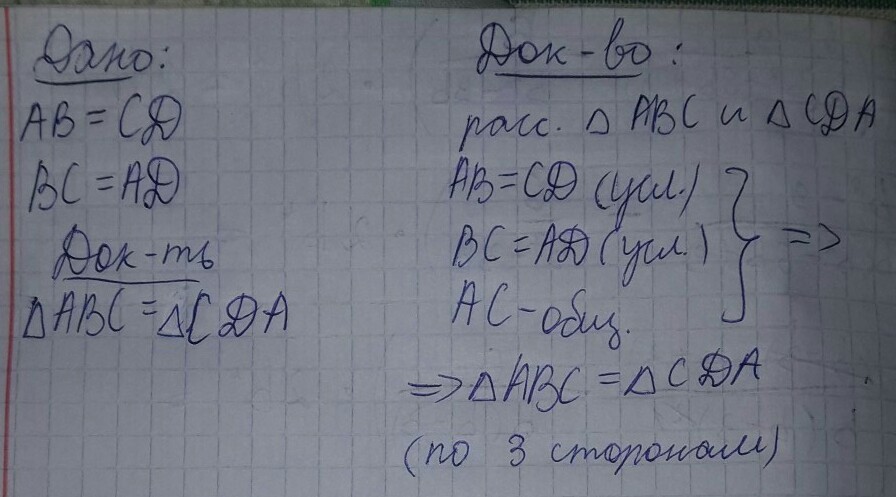 Дано:
AB = CD
BC = AD
Док-ть
△ABC = △CDA
Док-во:
расс. △ ABC и △ CDA
AB = CD (усл.)
BC = AD (усл.) } =>
AC - общ.
=> △ABC = △CDA
(по 3 сторонам)